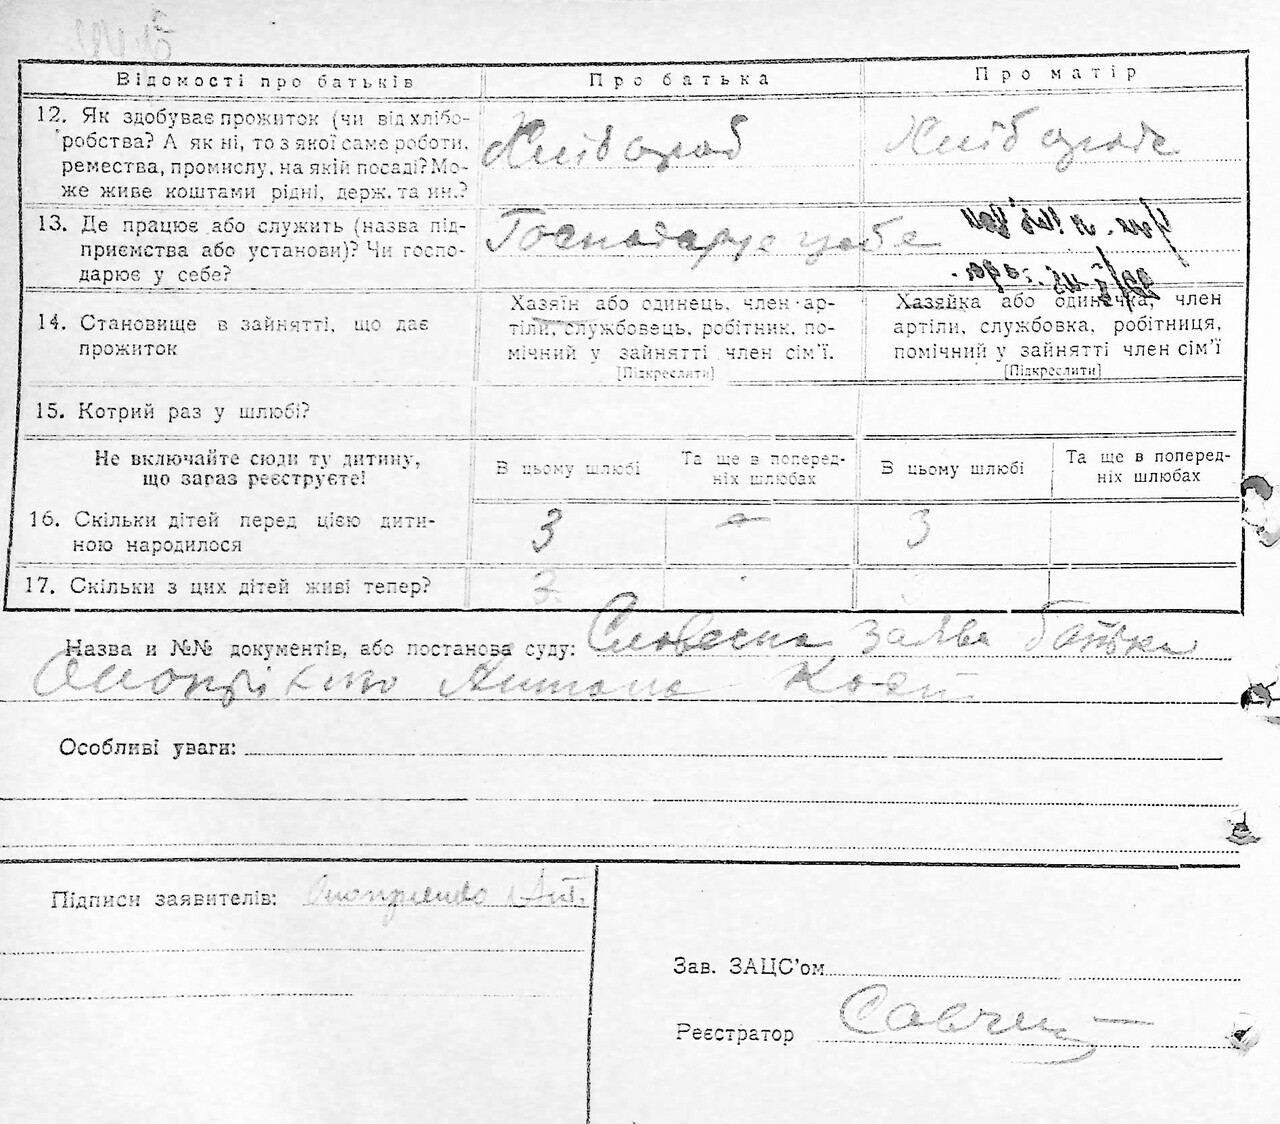 Відомості про батьків
Про батька
Про матір
12. Як здобуває прожиток (чи від хлібо-
робства? А як ні, то з якої саме роботи,
ремества, промислу, на якій посаді? Мо-
же живе коштами рідні, держ. та ин.?
Хлібороб
13. Де працює або служить (назва під-
приємства або установи)? Чи госпо-
дарює у себе?
Господарує у себе
14. Становище в зайнятті, що дає
прожиток
Хазяїн або одинець, член ар-
тілі, службовець, робітник, по-
мічний у зайнятті член сім'ї.
[Підкреслити]
Хазяйка або одиначка, член
артіли, службовка, робітниця,
помічний у зайнятті член сім'ї
[Підкреслити]
15. Котрий раз у шлюбі?
Не включайте сюди ту дитину,
що зараз реєструєте!
В цьому шлюбі
Та ще в поперед-
ніх шлюбах
В цьому шлюбі
Та ще в поперед-
ніх шлюбах
16. Скільки дітей перед цією дити-
ною народилося
3
-
3
17. Скільки з цих дітей живі тепер?
3
3
Назва и №№ документів, або постанова суду: Словесна заява батька
Антона
Особливі уваги:
Підписи заявителів: Ант.
Зав. ЗАЦС'ом
Реєстратор